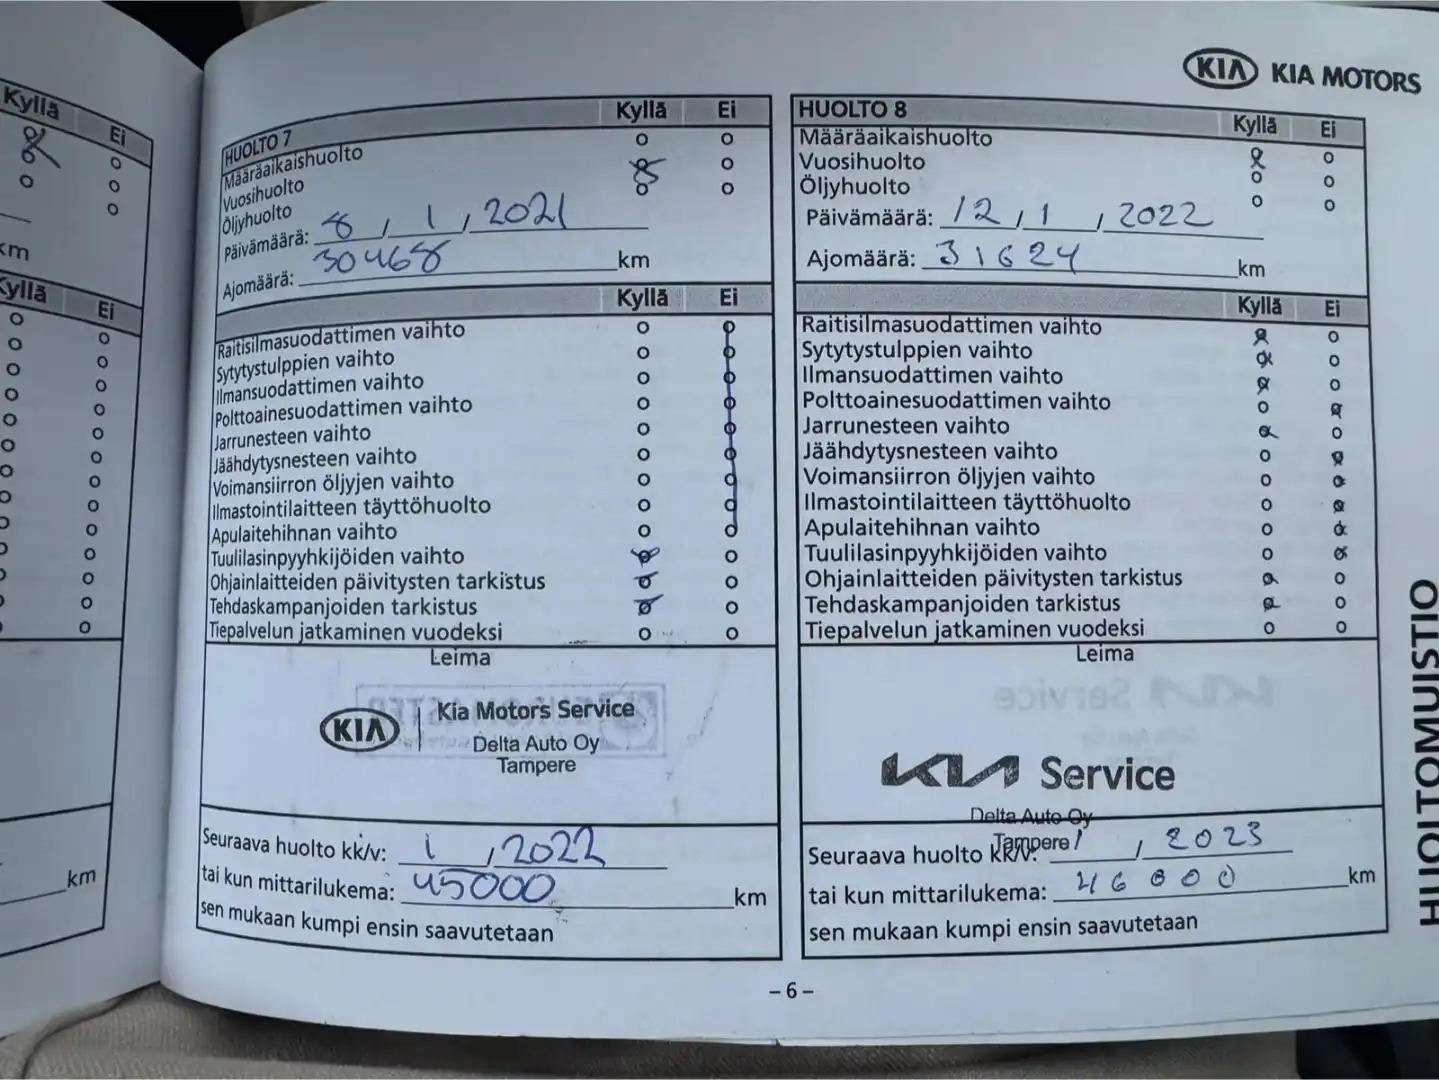 KIA KIA MOTORS
Kyllä Ei
km
Kyllä Ei
km
HUOLTO 7 Kyllä Ei
Määräaikaishuolto
Vuosihuolto
Öljyhuolto
Päivämäärä: 8 / 1 / 2021
Ajomäärä: 30468 km
Kyllä Ei
Raitisilmasuodattimen vaihto
Sytytystulppien vaihto
Ilmansuodattimen vaihto
Polttoainesuodattimen vaihto
Jarrunesteen vaihto
Jäähdytysnesteen vaihto
Voimansiirron öljyjen vaihto
Ilmastointilaitteen täyttöhuolto
Apulaitehihnan vaihto
Tuulilasinpyyhkijöiden vaihto
Ohjainlaitteiden päivitysten tarkistus
Tehdaskampanjoiden tarkistus
Tiepalvelun jatkaminen vuodeksi
Leima
KIA Kia Motors Service
Delta Auto Oy
Tampere
Seuraava huolto kk/v: 1 / 2022
tai kun mittarilukema: 45000 km
sen mukaan kumpi ensin saavutetaan
HUOLTO 8 Kyllä Ei
Määräaikaishuolto
Vuosihuolto
Öljyhuolto
Päivämäärä: 12 / 1 / 2022
Ajomäärä: 31624 km
Kyllä Ei
Raitisilmasuodattimen vaihto
Sytytystulppien vaihto
Ilmansuodattimen vaihto
Polttoainesuodattimen vaihto
Jarrunesteen vaihto
Jäähdytysnesteen vaihto
Voimansiirron öljyjen vaihto
Ilmastointilaitteen täyttöhuolto
Apulaitehihnan vaihto
Tuulilasinpyyhkijöiden vaihto
Ohjainlaitteiden päivitysten tarkistus
Tehdaskampanjoiden tarkistus
Tiepalvelun jatkaminen vuodeksi
Leima
KIA Service
Delta Auto Oy
Tampere
Seuraava huolto kk/v: 1 / 2023
tai kun mittarilukema: 46000 km
sen mukaan kumpi ensin saavutetaan
HUOLTOMUISTIO
– 6 –